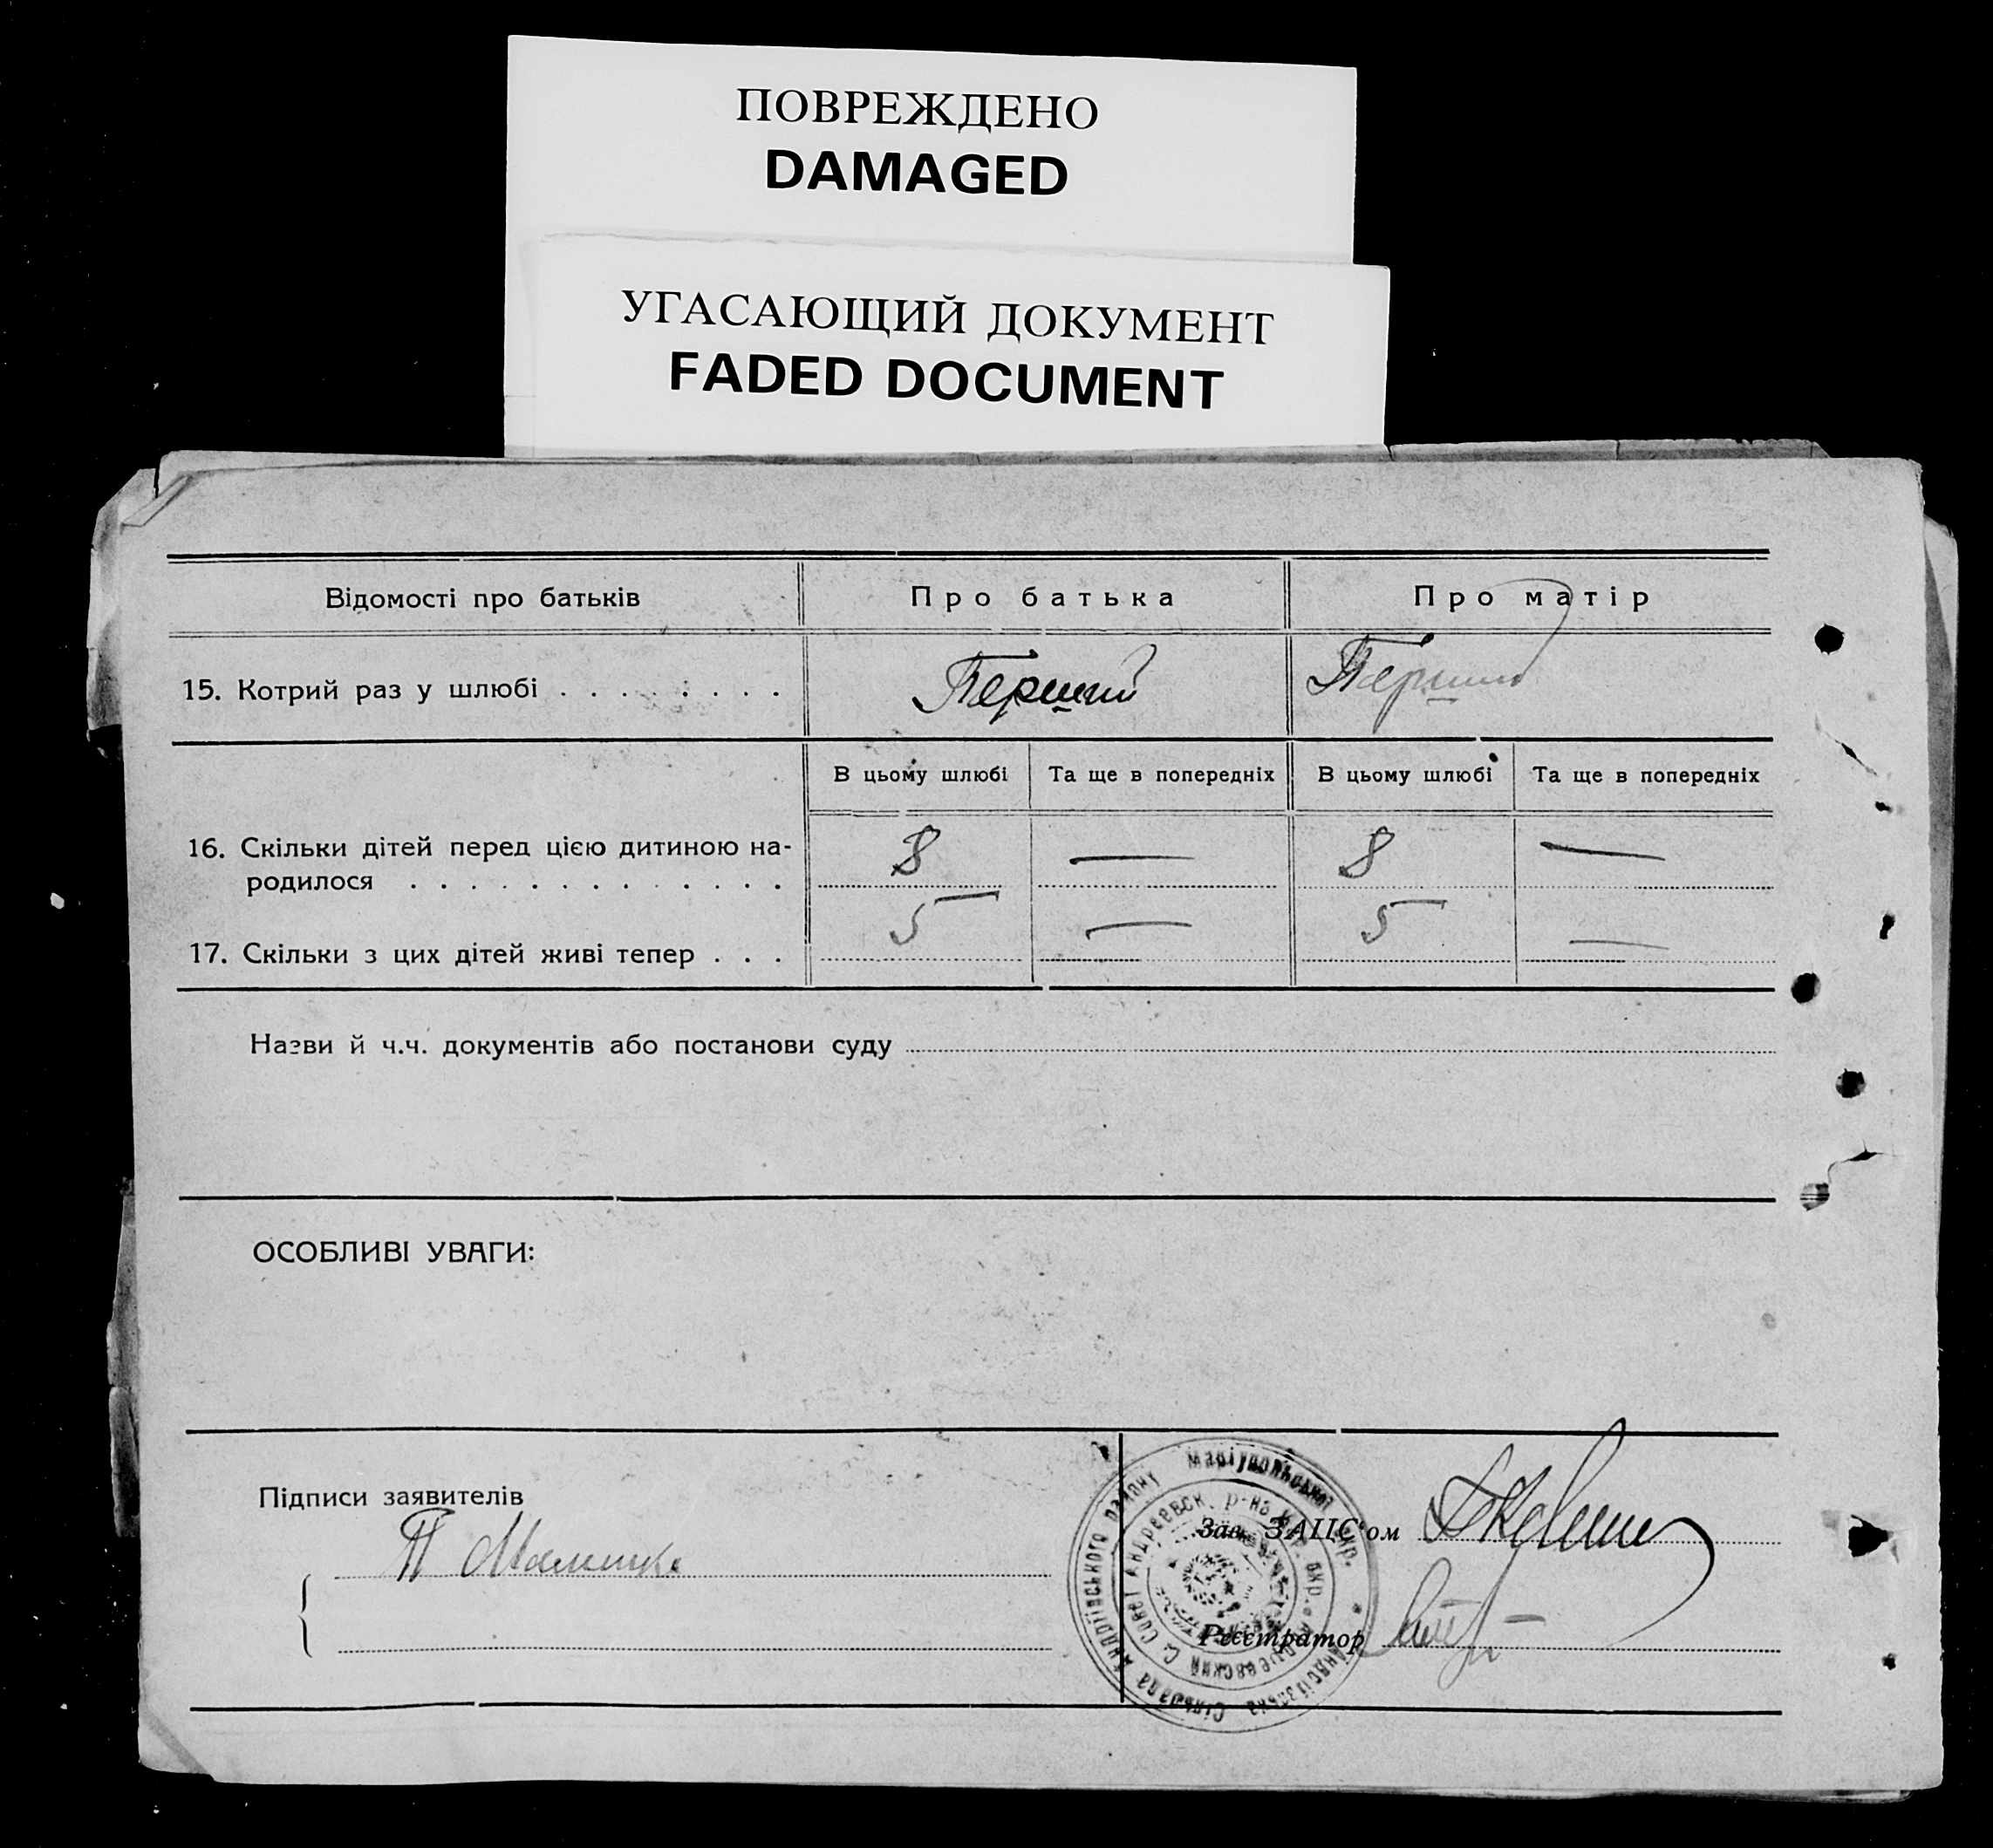 ПОВРЕЖДЕНО
DAMAGED
УГАСАЮЩИЙ ДОКУМЕНТ
FADED DOCUMENT
Відомості про батьків
Про батька
Про матір
15. Котрий раз у шлюбі . . . . . . . .
Перший
Перший
В цьому шлюбі
Та ще в попередніх
В цьому шлюбі
Та ще в попередніх
16. Скільки дітей перед цією дитиною на-
родилося . . . . . . . . . . . . .
8 — 8 —
17. Скільки з цих дітей живі тепер . . .
5 — 5 —
Назви й ч.ч. документів або постанови суду
ОСОБЛИВІ УВАГИ:
Підписи заявителів
П
Зав. ЗАЦС'ом
Реєстратор
Сільрада Андріівського району Маріупольської окр.